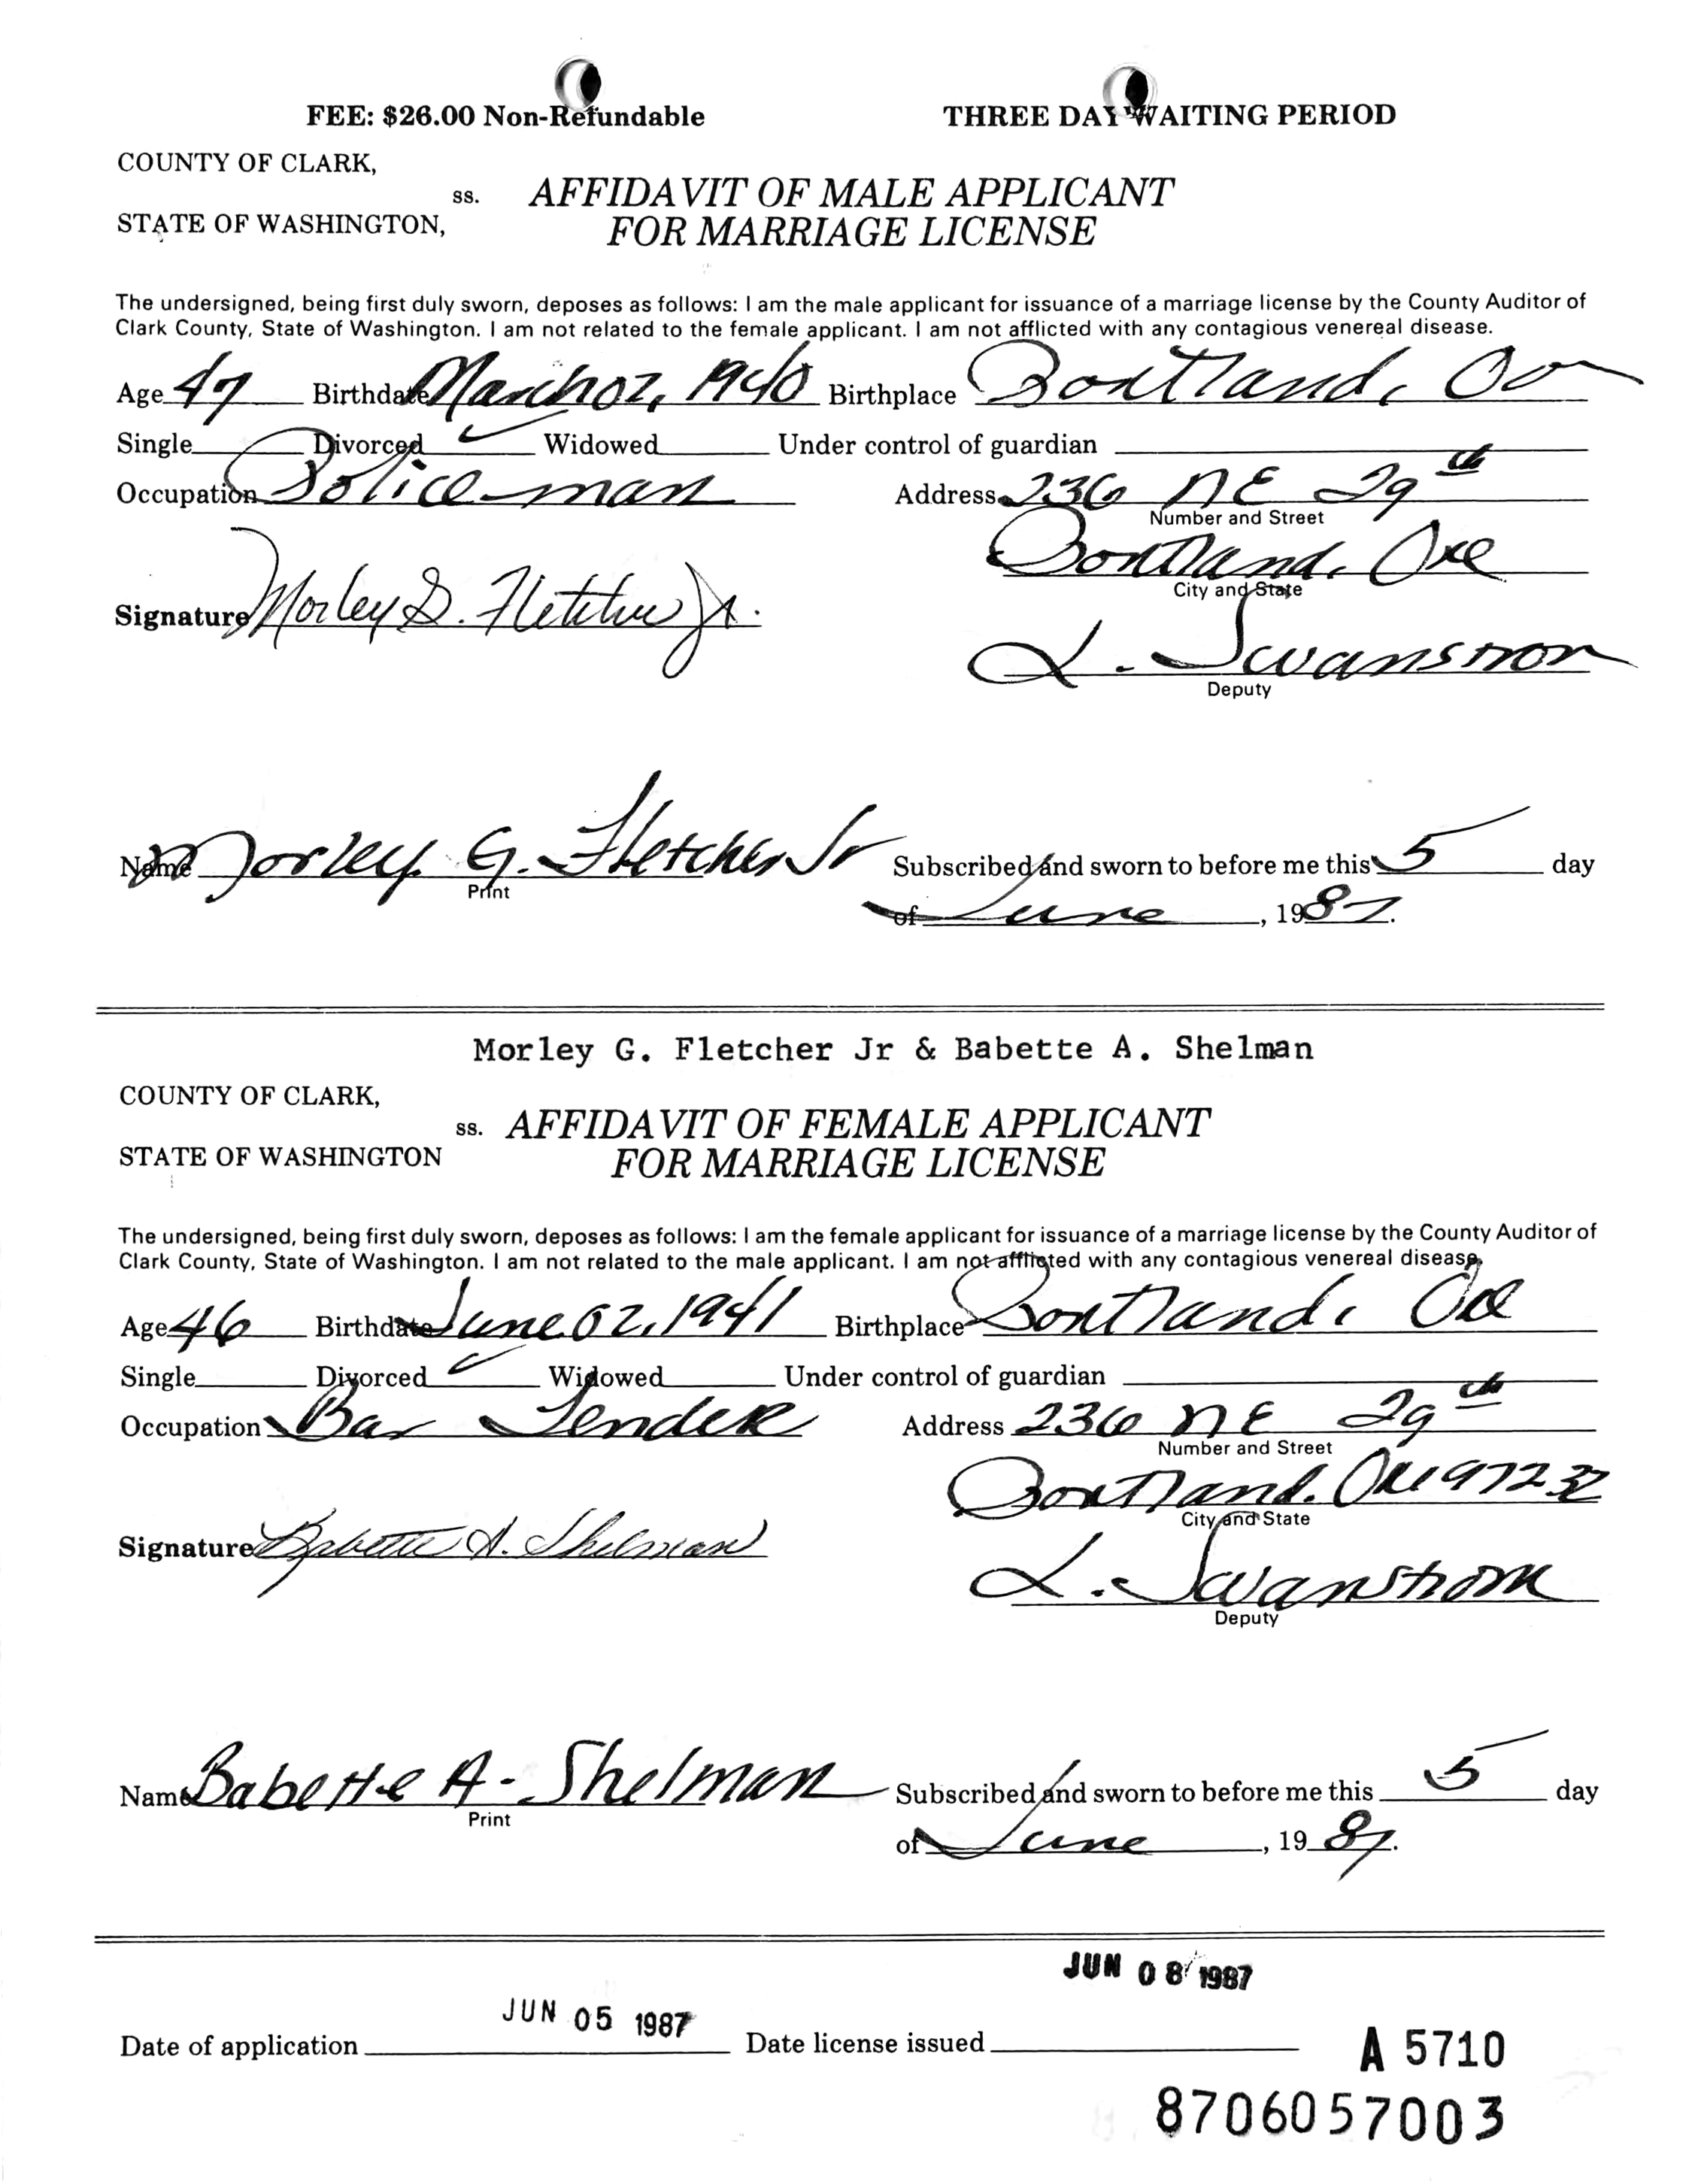 FEE: $26.00 Non-Refundable THREE DAY WAITING PERIOD
COUNTY OF CLARK,
ss. AFFIDAVIT OF MALE APPLICANT
STATE OF WASHINGTON, FOR MARRIAGE LICENSE
The undersigned, being first duly sworn, deposes as follows: I am the male applicant for issuance of a marriage license by the County Auditor of
Clark County, State of Washington. I am not related to the female applicant. I am not afflicted with any contagious venereal disease.
Age 47 Birthdate March 02, 1940 Birthplace Portland, Or
Single Divorced ✓ Widowed Under control of guardian
Occupation Police man Address 236 NE 29th
Number and Street
Portland, Ore
City and State
Signature Morley G. Fletcher Jr.
L. Swanstrom
Deputy
Name Morley G. Fletcher Jr Subscribed and sworn to before me this 5 day
Print
of June, 1987.
Morley G. Fletcher Jr & Babette A. Shelman
COUNTY OF CLARK,
ss. AFFIDAVIT OF FEMALE APPLICANT
STATE OF WASHINGTON FOR MARRIAGE LICENSE
The undersigned, being first duly sworn, deposes as follows: I am the female applicant for issuance of a marriage license by the County Auditor of
Clark County, State of Washington. I am not related to the male applicant. I am not afflicted with any contagious venereal disease.
Age 46 Birthdate June 02, 1941 Birthplace Portland, Ore
Single Divorced ✓ Widowed Under control of guardian
Occupation Bar Tender Address 236 NE 29th
Number and Street
Portland, Ore 97232
City and State
Signature Babette A. Shelman
L. Swanstrom
Deputy
Name Babette A. Shelman Subscribed and sworn to before me this 5 day
Print
of June, 1987.
JUN 08 1987
JUN 05 1987
Date of application Date license issued
A 5710
8706057003